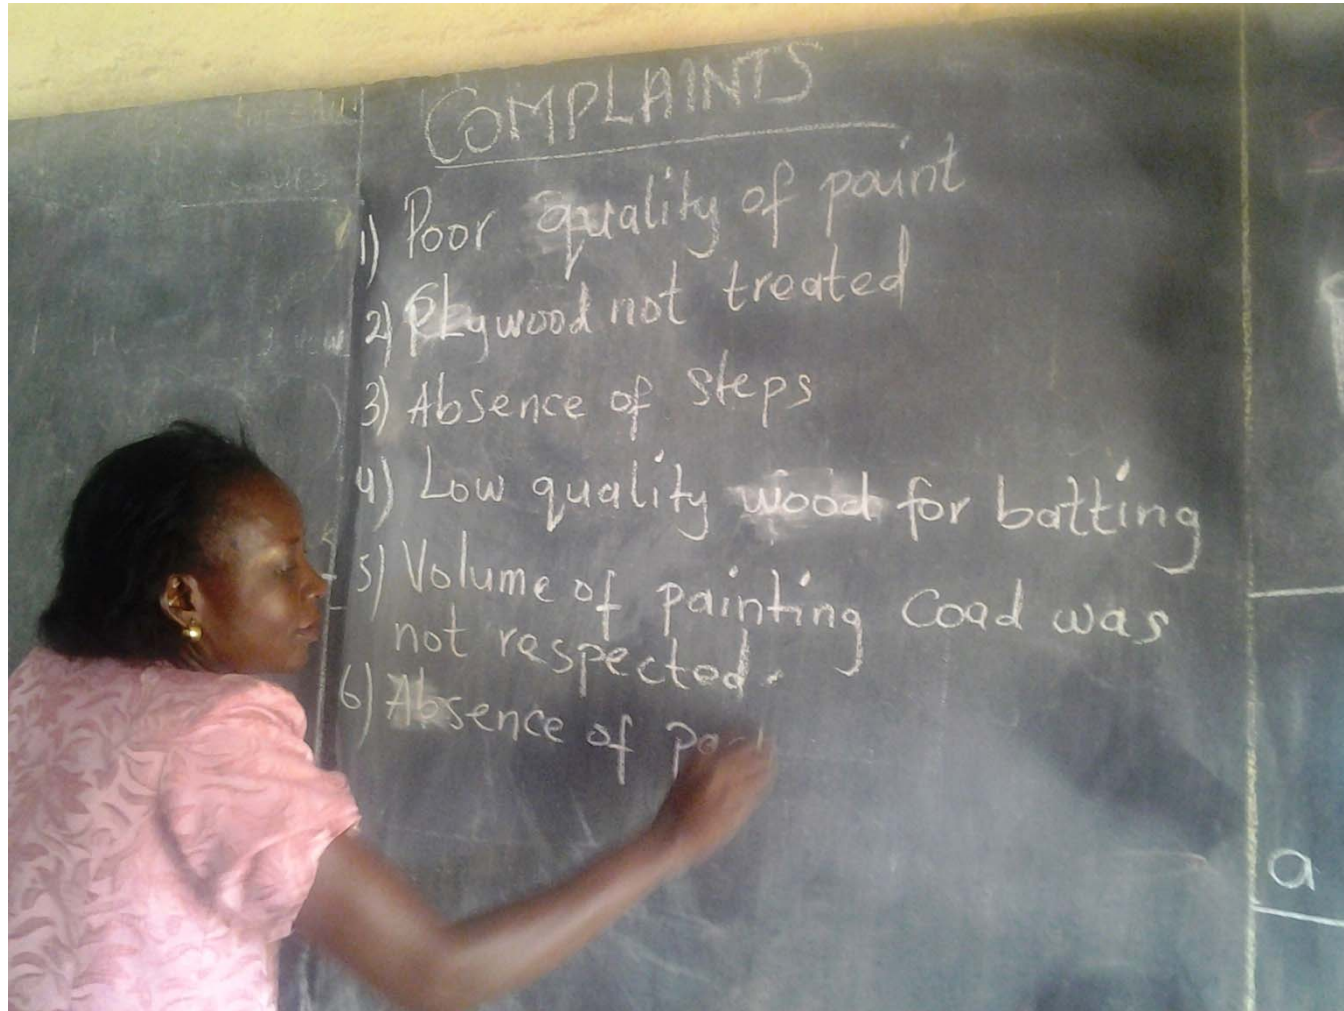 COMPLAINTS
1) Poor quality of paint
2) Plywood not treated
3) Absence of steps
4) Low quality wood for batting
5) Volume of painting Coad was
not respected.
6) Absence of
a